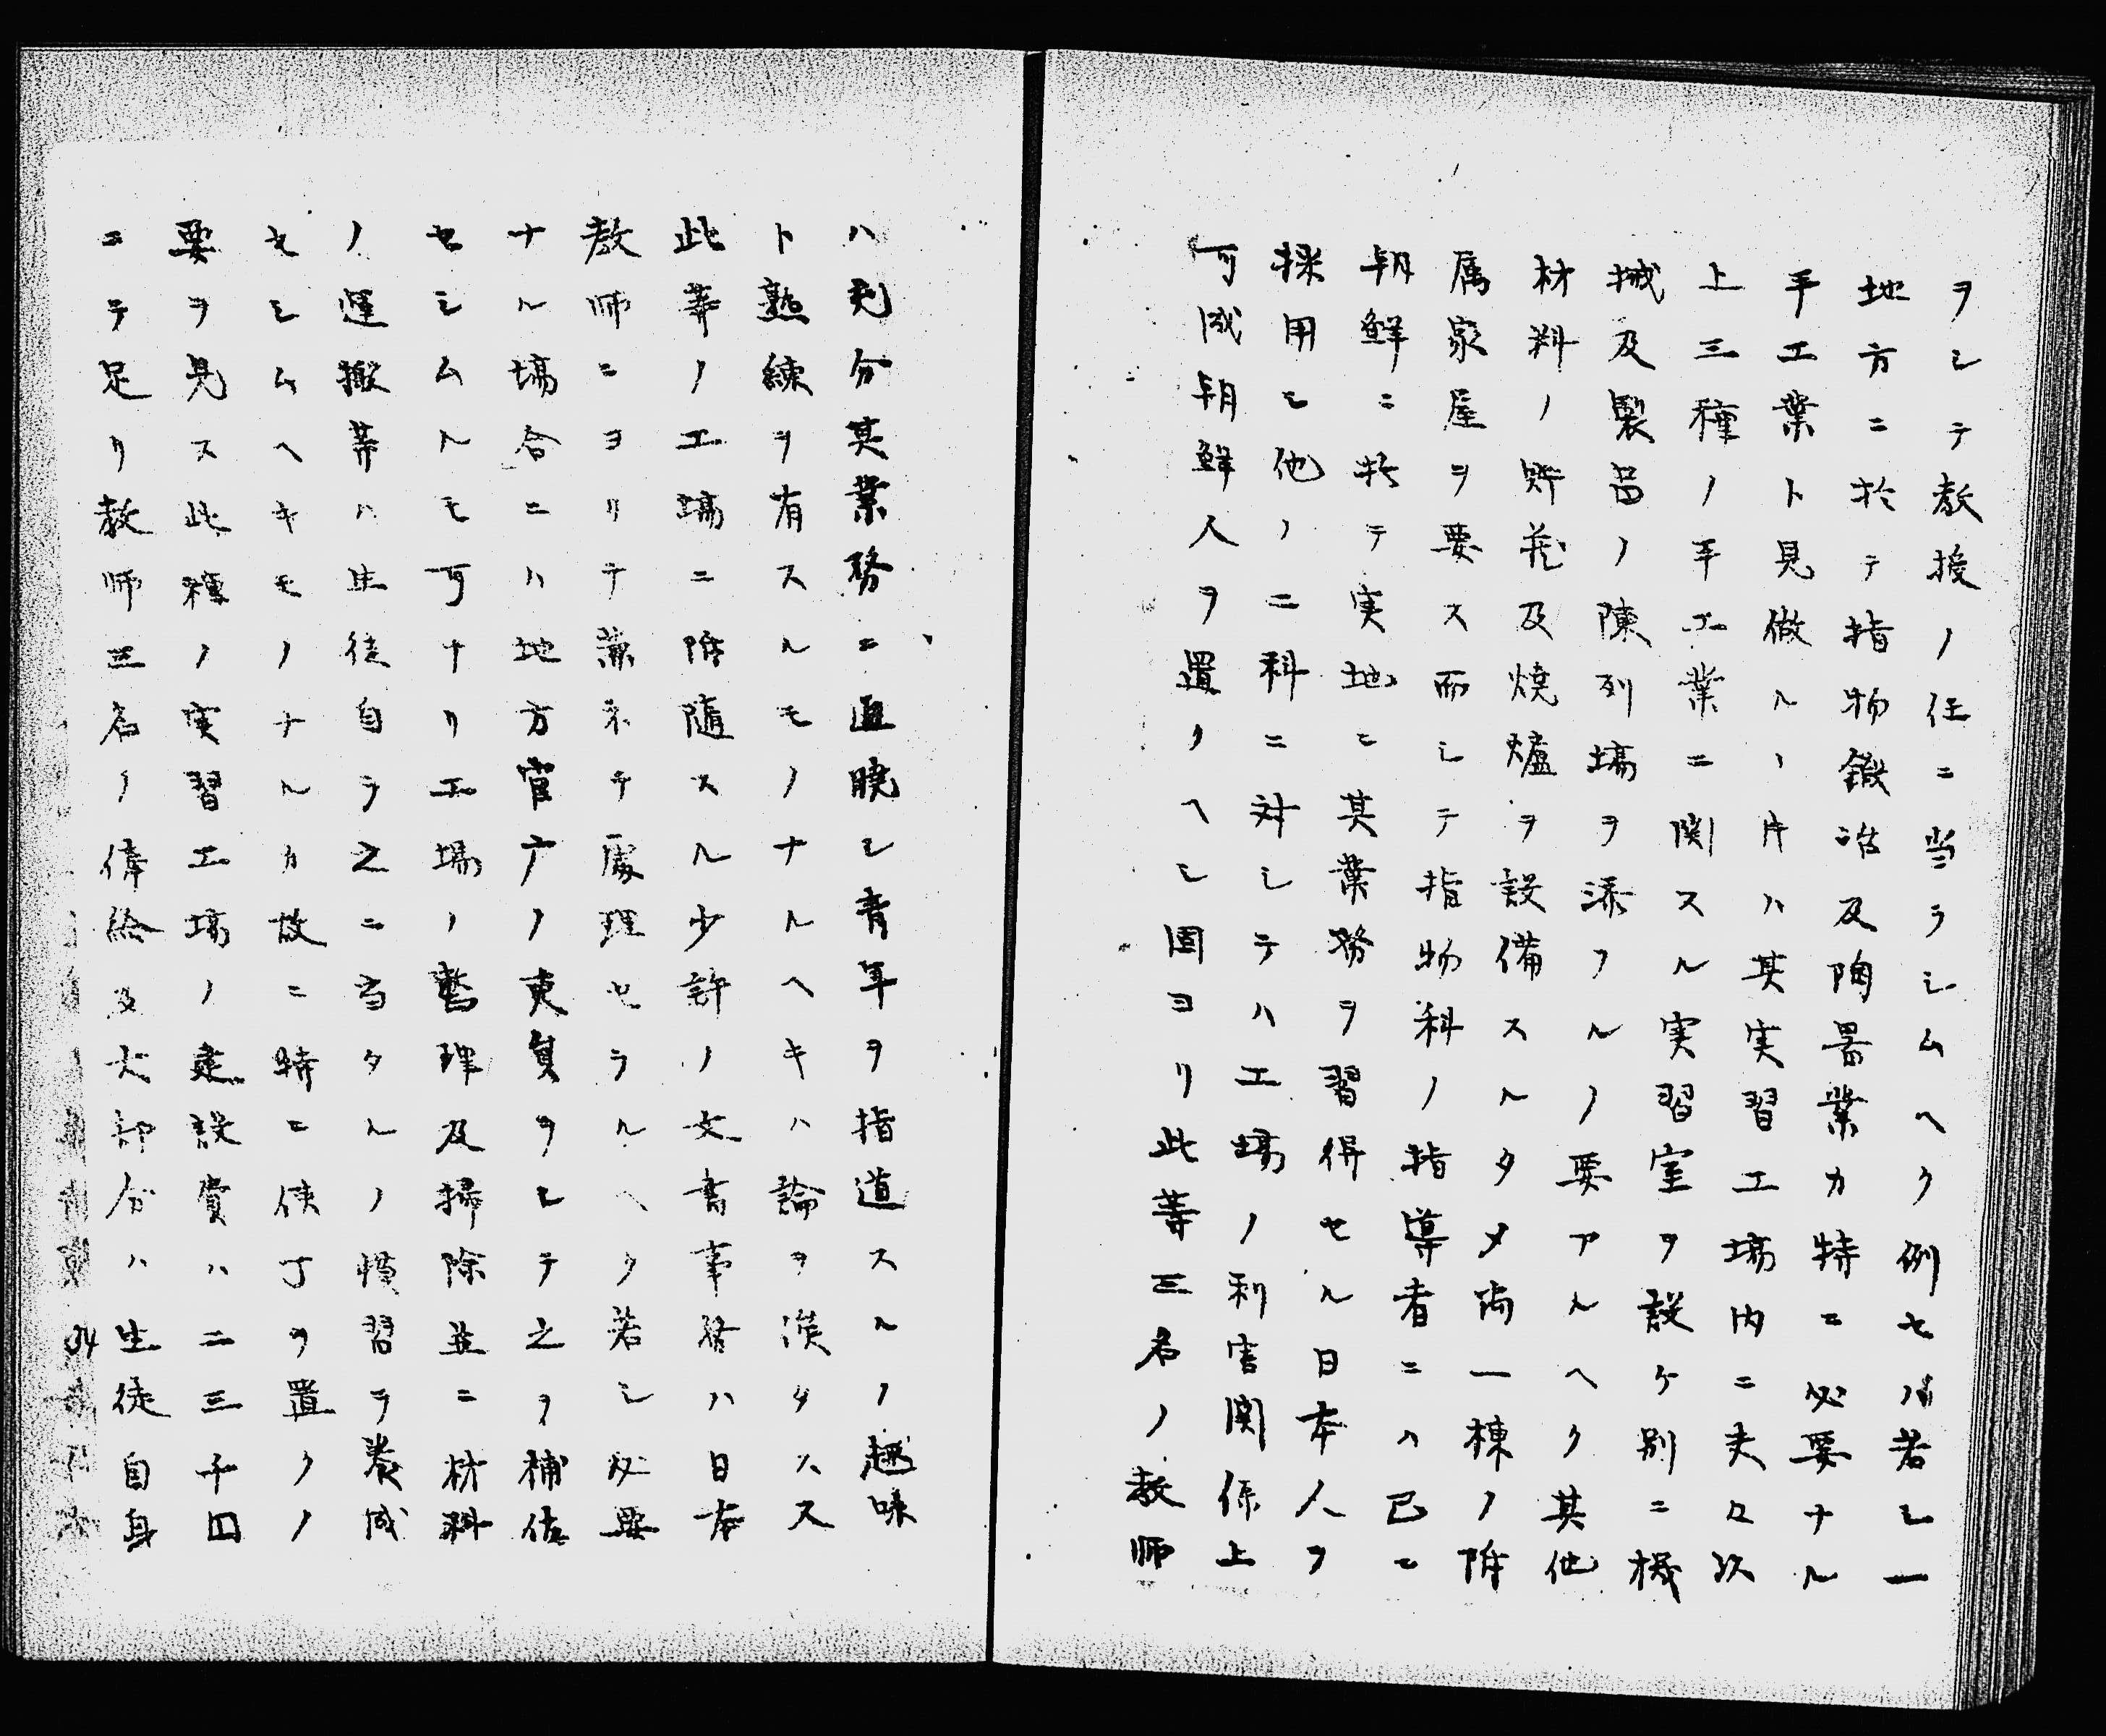 ヲシテ教授ノ任ニ当ラシムヘク例セハ若シ一
地方ニ於テ指物鍛冶及陶器業カ特ニ必要ナル
手工業ト見做ルヽ片ハ其実習工場内ニ夫々以
上三種ノ手工業ニ関スル実習室ヲ設ケ別ニ機
械及製品ノ陳列場ヲ添フルノ要アルヘク其他
材料ノ貯蔵及焼爐ヲ設備スルタメ尚一棟ノ附
属家屋ヲ要ス而シテ指物科ノ指導者ニハ已ニ
朝鮮ニ於テ実地ニ其業務ヲ習得セル日本人ヲ
採用シ他ノ二科ニ対シテハ工場ノ利害関係上
可成朝鮮人ヲ置クヘシ固ヨリ此等三名ノ教師
ハ充分其業務ニ通暁シ青年ヲ指道スルノ趣味
ト熟練ヲ有スルモノナルヘキハ論ヲ俟タス
此等ノ工場ニ附随スル少許ノ文書事務ハ日本
教師ニヨリテ兼ネテ處理セラルヘク若シ必要
ナル場合ニハ地方官庁ノ吏員ヲシテ之ヲ補佐
セシムルモ可ナリ工場ノ整理及掃除並ニ材料
ノ運搬等ハ生徒自ラ之ニ当タルノ慣習ヲ養成
セシムヘキモノナルカ故ニ特ニ使丁ヲ置クノ
要ヲ見ス此種ノ実習工場ノ建設費ハ二三千円
ニテ足リ教師三名ノ俸給及大部分ハ生徒自身